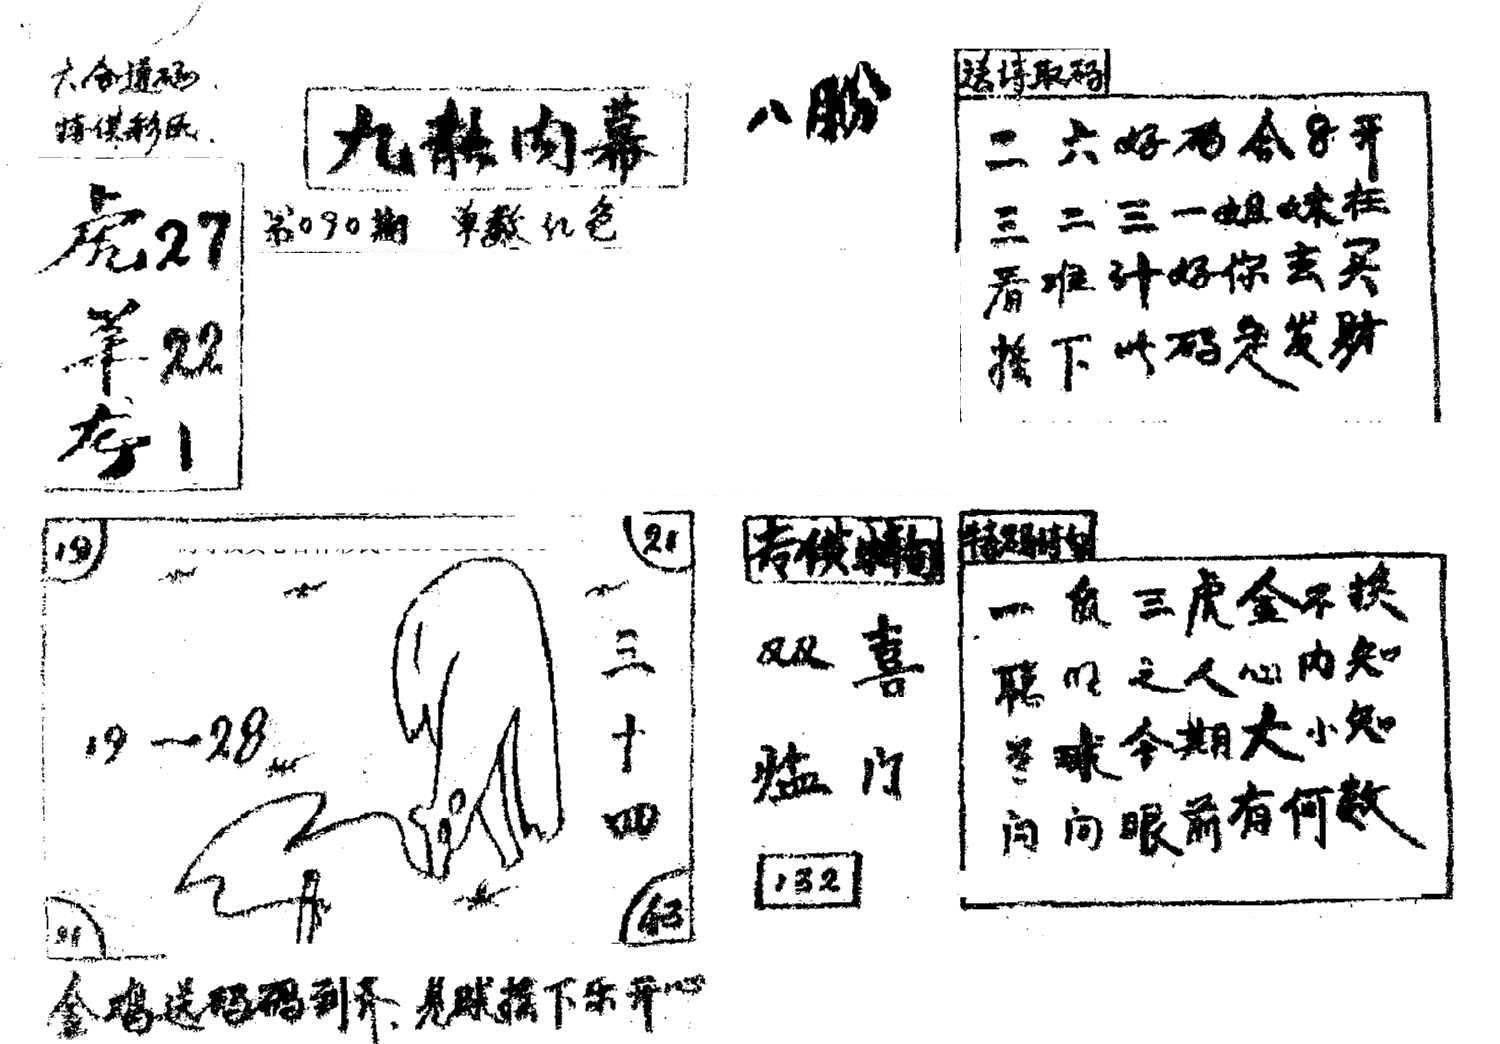 六合道码.
特供彩民.
九龍内幕
第090期 单数红色
虎27
羊22
龙1
八胁
送特取码
二六好码合8开
三二三一姐妹在
看准计好你去买
接下此码是发财
19
21
三十四
19—28
21
43
金鸡送码码到齐、见球接下乐开心
考供特句
双喜
临门
132
特码诗句
一鼠三虎金不换
聪明之人心内知
其球今期大小知
问问眼前有何数